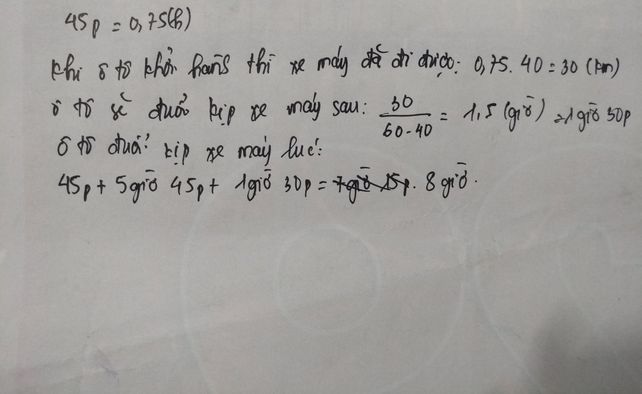 45p = 0,75(h)
Khi ô tô khởi hành thì xe máy đã đi được: 0,75.40 = 30 (km)
ô tô sẽ đuổi kịp xe máy sau: 30/(60-40) = 1,5 (giờ) = 1 giờ 30p
ô tô đuổi kịp xe máy lúc:
45p + 5giờ 45p + 1giờ 30p = 7giờ 15p. 8 giờ.